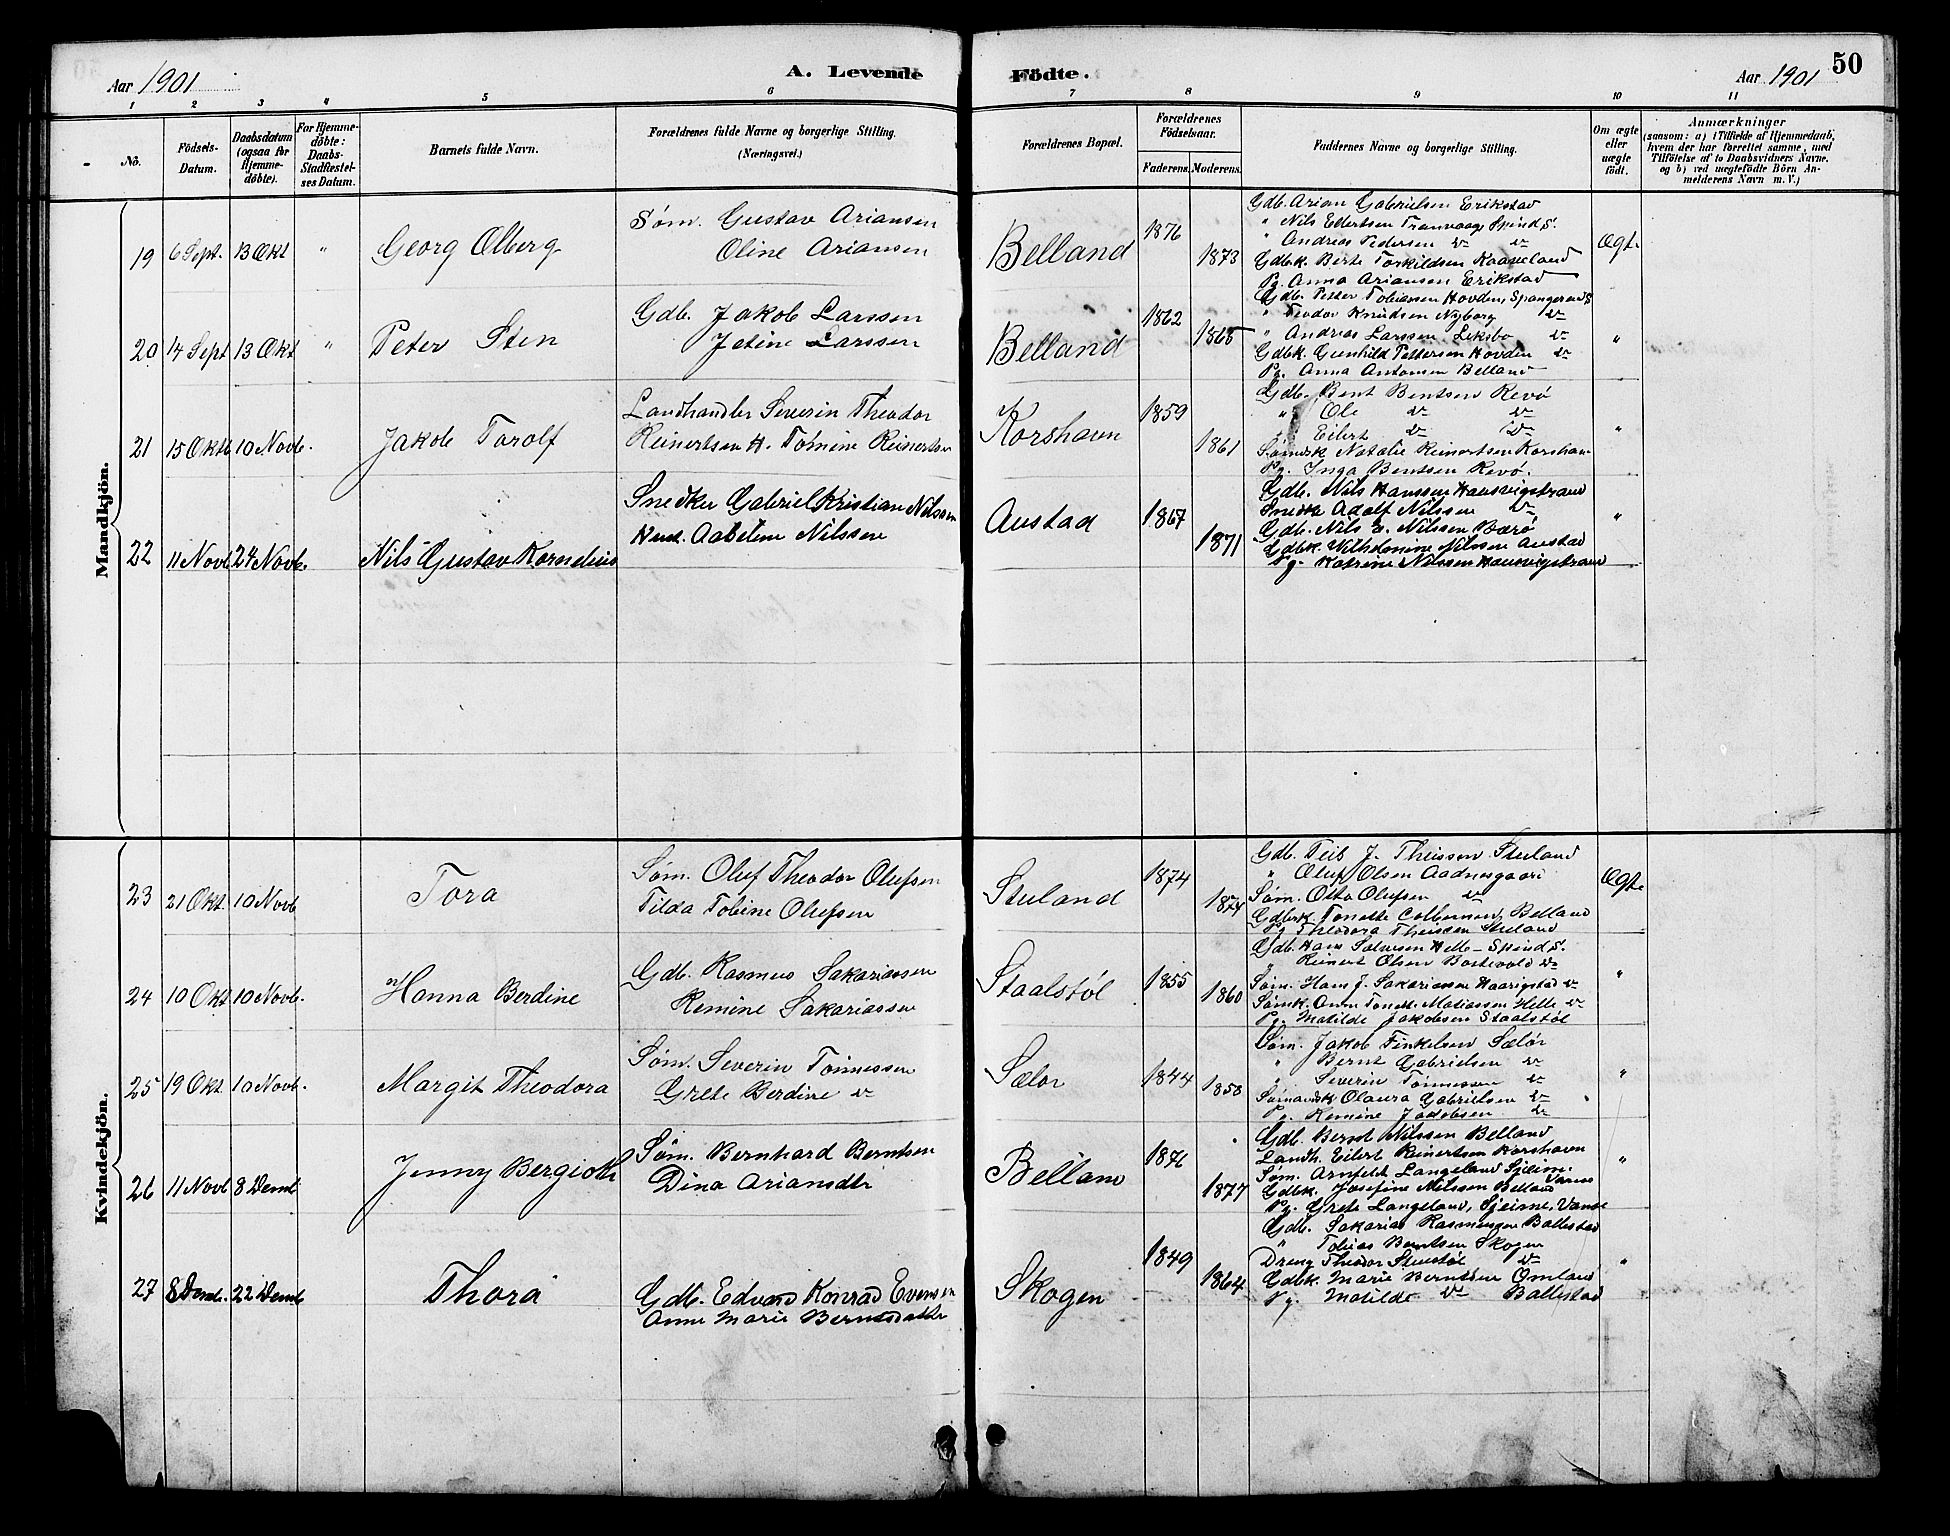 Aar 1901
A. Levende Födte.
Aar 1901
50
1 2 3 4 5 6 7 8 9 10 11
No.
Födsels-Datum.
Daabsdatum (ogsaa for Hjemme-döbte).
For Hjemme-döbte: Daabs-Stadfæstelses Datum.
Barnets fulde Navn.
Forældrenes fulde Navne og borgerlige Stilling.
(Næringsvei.)
Forældrenes Bopæl.
Forældrenes Födselsaar.
Faderens. Moderens.
Faddernes Navne og borgerlige Stilling.
Om ægte eller uægte födt.
Anmærkninger
(saasom: a) i Tilfælde af Hjemmedaab,
hvem der har forrettet samme, med
Tilföielse af to Daabsvidners Navne.
og b) ved uægtefödte Börn An-
melderens Navn m. V.)
Mandkjön.
19 6 Sept. 13 Okt " Georg Olberg
Søm. Gustav Ariansen
Oline Ariansen
Belland 1876 1873
Gdb. Arian Gabrielsen Erikstad
" Nils Eilertsen Tranvaag Spind S.
" Andreas Pedersen do do
Gdbk. Berte Torkildsen Kaaveland
Pg. Anna Ariansen Erikstad
Ægt.
20 14 Sept 13 Okt " Peter Sten
Gdb. Jakob Larssen
Jetine Larssen
Belland 1862 1865
Gdb. Petter Tobiassen Hovden, Spangereid S
" Teodor Knudsen Nyborg do
" Andreas Larssen Leksbo do
Gdbk. Gunhild Pettersen Hovden do
Pg. Anna Antonsen Belland
"
21 15 Okt 10 Novb. Jakob Torolf
Landhandler Severin Theodor
Reinertsen H. Tømine Reinertsen
Korshavn 1859 1861
Gdb. Bent Bentsen Revø
" Ole do do
" Eilert do do
Sømdsk Natalie Reinertsen Korshavn
Pg. Inga Bentsen Revø.
"
22 11 Novb 24 Novb. Nils Gustav Kornelius
Snedker Gabriel Kristian Nilssen
Hust. Aabeline Nilssen
Austad 1867 1871
Gdb. Nils Hanssen Hausvigstrand
Snedk Adolf Nilssen do
Gdb. Nils A. Nilssen Bærø
Gdbk. Wilhelmine Nilssen Austad
Pg. Katrine Nilssen Hausvigstrand
"
Kvindekjön.
23 21 Okt. 10 Novb Tora
Søm. Oluf Theodor Olufsen
Tilda Tobine Olufsen
Stuland 1874 1874
Gdb. Teis J. Theissen Stuland
" Oluf Olsen Aadnesgaard
Søm. Otto Olufsen do
Gdbrk. Tonette Colbernsen Belland
Pg Theodora Theissen Stuland
Ægte
24 10 Okt 10 Novb. Hanna Berdine
Gdb. Rasmus Sakariassen
Remine Sakariassen
Staalstøl 1855 1860
Gdb. Hans Salvesen Helle Spind S.
" Reinert Olsen do
Søm. Hans J. Sakariassen Haarigstad do
Sømk. Anne Tonette Matiassen Helle do
Pg. Matilde Jakobsen Staalstøl
"
25 19 Okt. 10 Novb. Margit Theodora
Søm. Severin Tönnessen
Grete Berdine do
Sælør 1844 1858
Søm. Jakob Finkelsen Sælør
" Bernt Gabrielsen do
" Severin Tønnessen do
Sømandsk Olaura Gabrielsen do
Pg. Remine Jakobsen do
"
26 11 Novb 8 Decmb Jenny Bergioth
Søm. Bernhard Berntsen
Dina Ariansdtr
Belland 1876 1877
Gdb. Bernt Nilssen Belland
Landh. Eilert Reinertsen Korshavn
Søm. Arnfeldt Langeland Sjeime. Vanse
Gdbk. Josefine Nilssen Belland
Pg. Grete Langeland, Sjeime, Vanse
"
27 8 Decmb. 22 Decmb Thora
Gdb. Edvard Konrad Evensen
Anne Marie Berntsdatter
Skogen 1849 1864
Gdb. Sakarias Rasmussen Ballestad
" Tobias Berntsen Skogen
Dreng Theodor Stuestøl do
Gdbk. Marie Berntsen Omland
Pg. Matilde do Ballestad
"